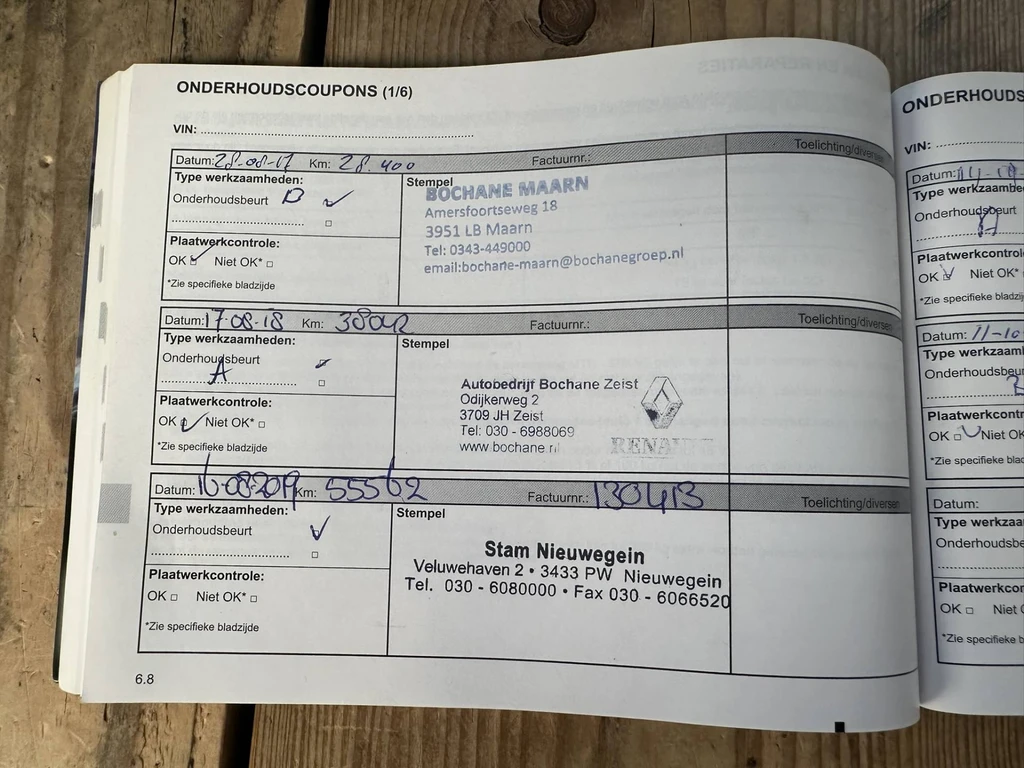 ONDERHOUDSCOUPONS (1/6)
VIN:
Datum: 28-08-17 Km: 28.400 Factuurnr.: Toelichting/diversen
Type werkzaamheden:
Stempel
Onderhoudsbeurt B
BOCHANE MAARN
Amersfoortseweg 18
3951 LB Maarn
Tel: 0343-449000
email:bochane-maarn@bochanegroep.nl
Plaatwerkcontrole:
OK Niet OK*
*Zie specifieke bladzijde
Datum: 17-08-18 Km: Factuurnr.: Toelichting/diversen
Type werkzaamheden:
Stempel
Onderhoudsbeurt
A
Autobedrijf Bochane Zeist
Odijkerweg 2
3709 JH Zeist
Tel: 030 - 6988069
www.bochane.nl
RENAULT
Plaatwerkcontrole:
OK Niet OK*
*Zie specifieke bladzijde
Datum: 16-08-2019 Km: 55562 Factuurnr.: 130413 Toelichting/diversen
Type werkzaamheden:
Stempel
Onderhoudsbeurt
Stam Nieuwegein
Veluwehaven 2 • 3433 PW Nieuwegein
Tel. 030 - 6080000 • Fax 030 - 6066520
Plaatwerkcontrole:
OK Niet OK*
*Zie specifieke bladzijde
6.8
ONDERHOUDS
VIN:
Datum:
Type werkzaamhe
Onderhoudsbeurt
A
Plaatwerkcontrol
OK Niet OK*
*Zie specifieke bladzij
Datum: 11-10
Type werkzaam
Onderhoudsbeu
Plaatwerkcontr
OK Niet OK
*Zie specifieke blad
Datum:
Type werkza
Onderhoudsbe
Plaatwerkcor
OK Niet
*Zie specifieke b